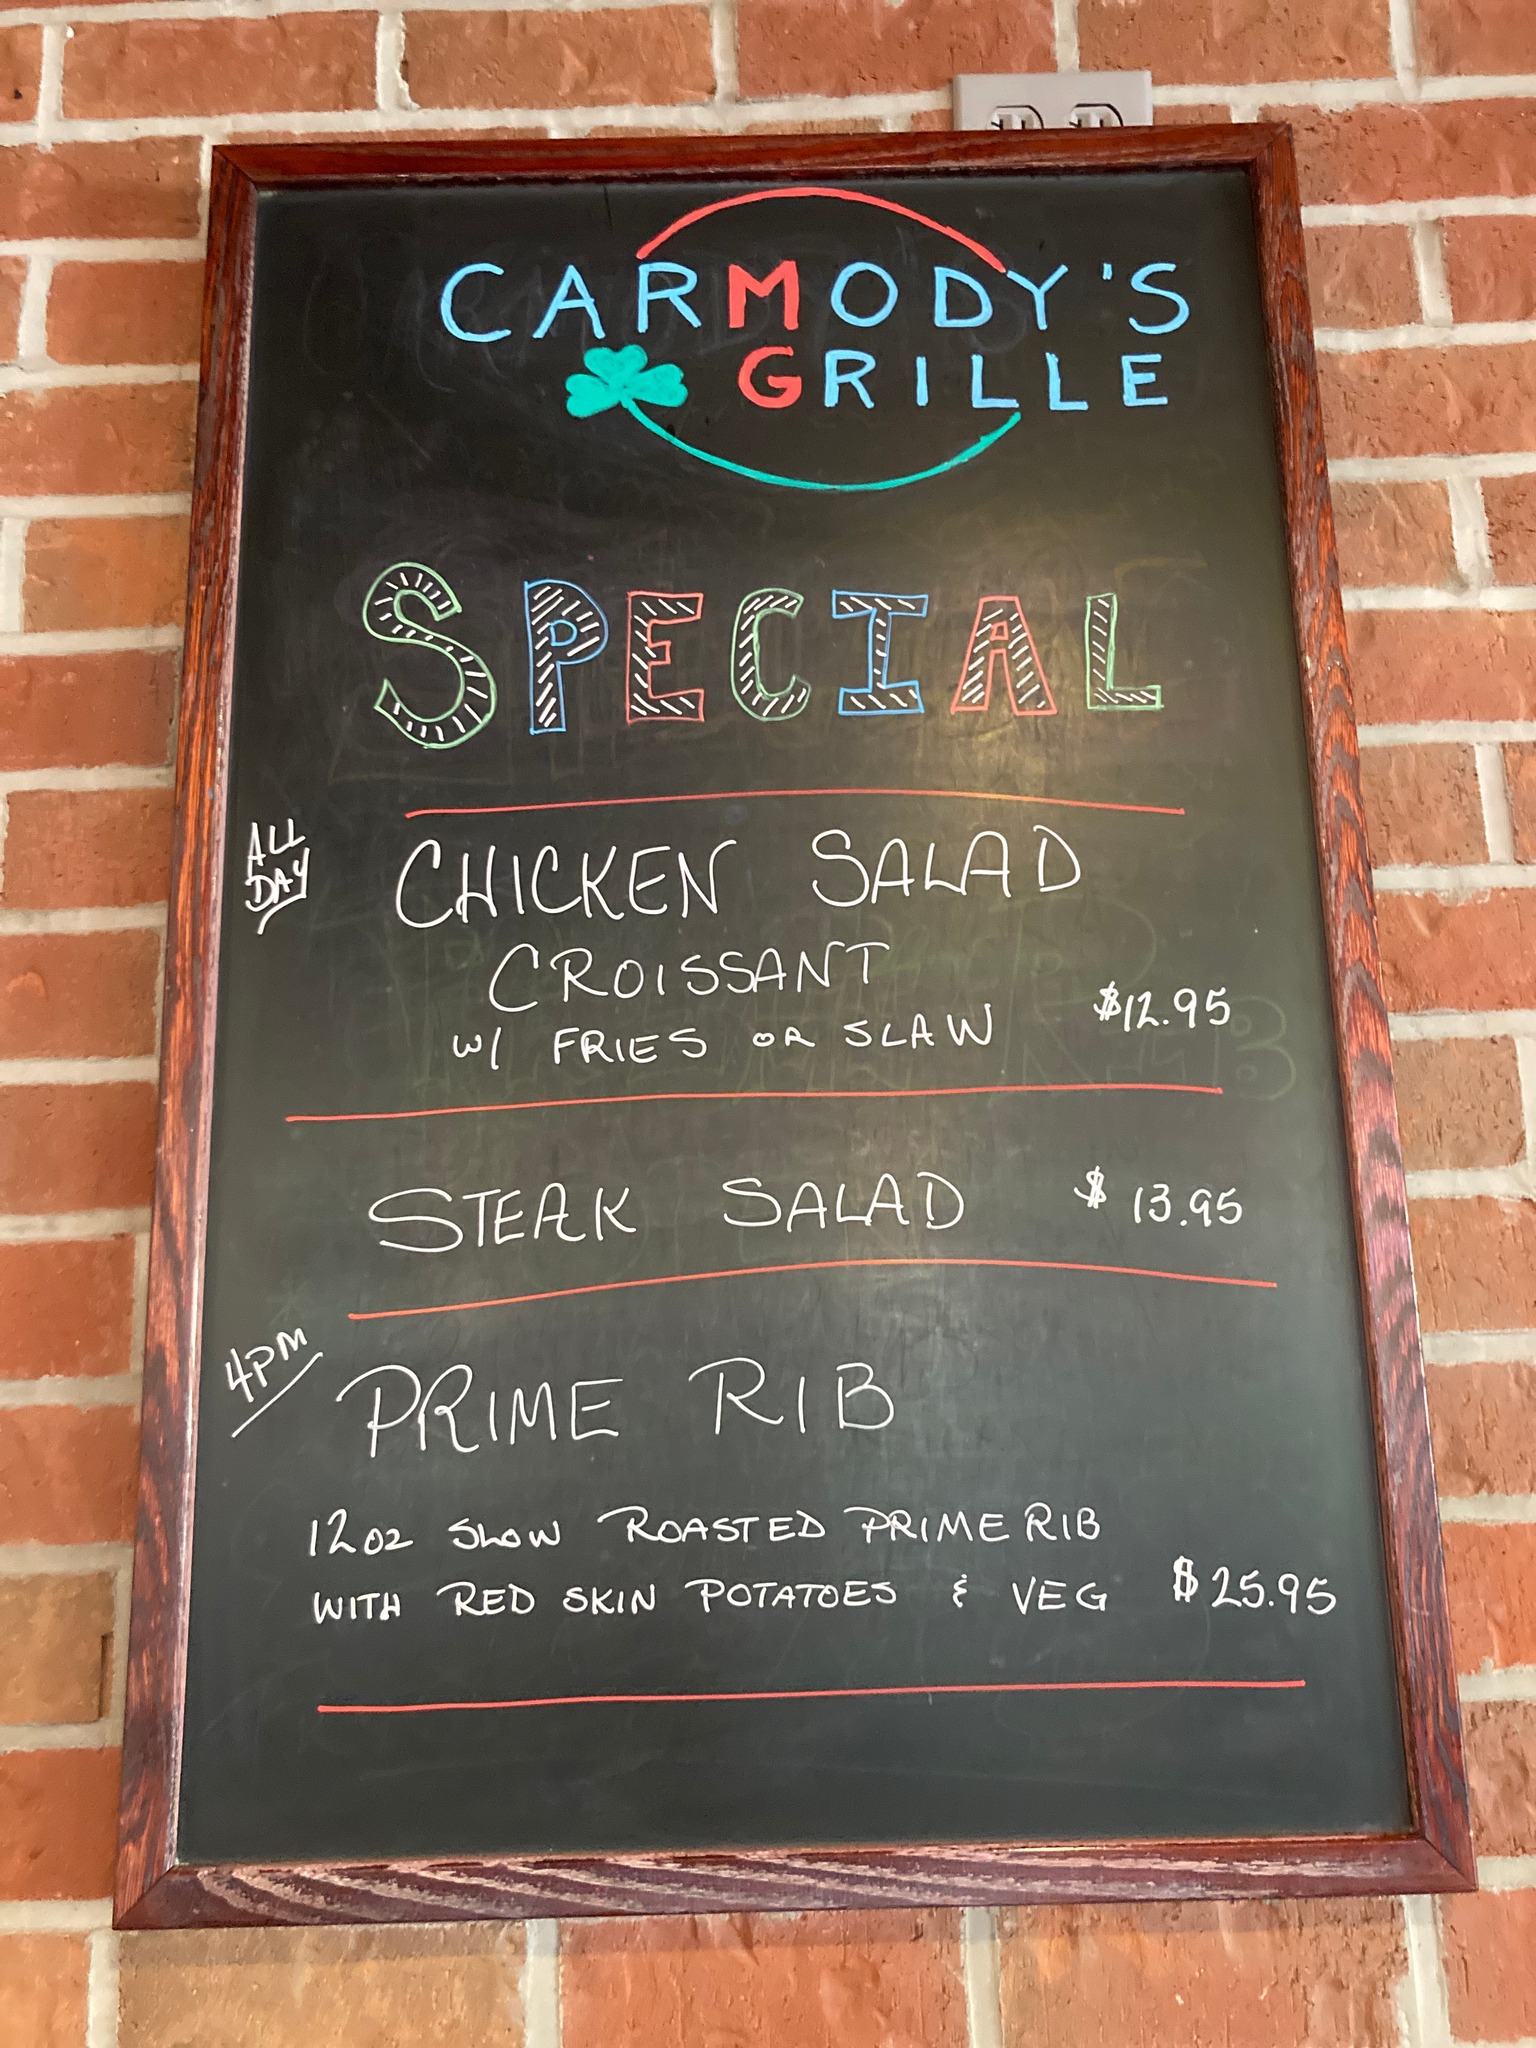 CARMODY'S
GRILLE
SPECIAL
ALL
DAY
CHICKEN SALAD
CROISSANT
W/ FRIES OR SLAW $12.95
STEAK SALAD $13.95
4PM
PRIME RIB
12OZ SLOW ROASTED PRIME RIB
WITH RED SKIN POTATOES & VEG $25.95